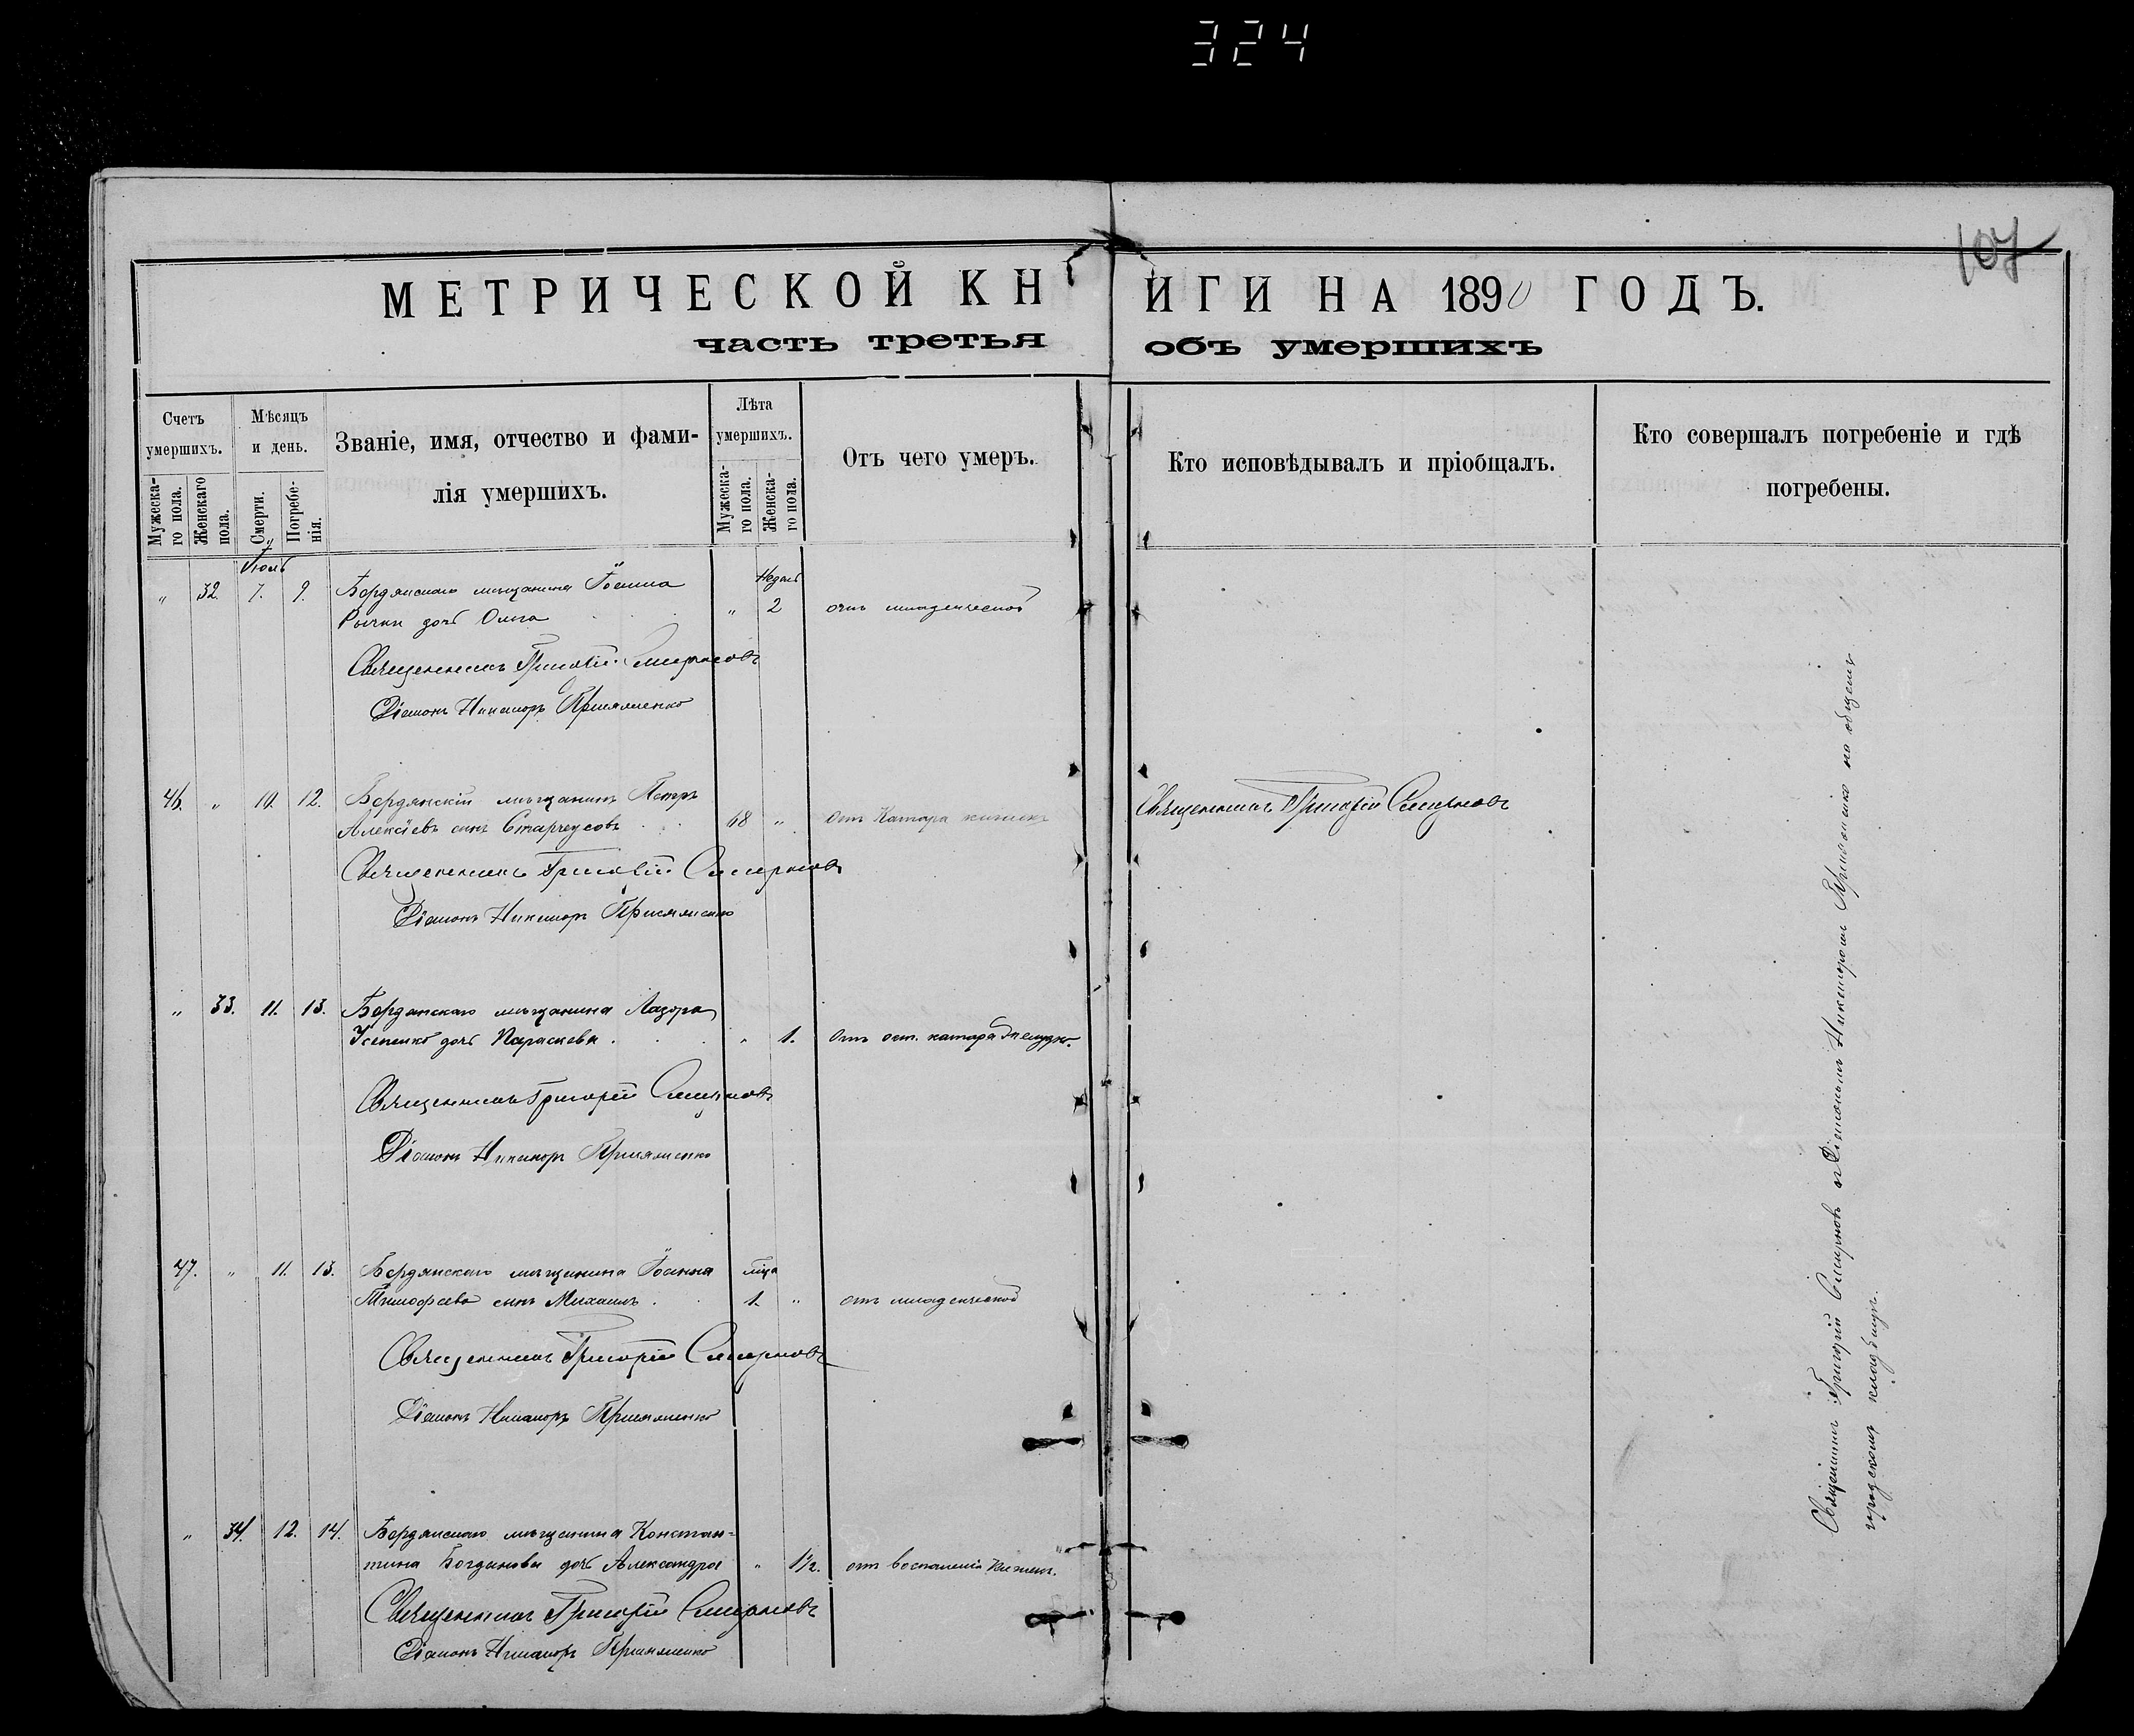 324
107
МЕТРИЧЕСКОЙ КНИГИ НА 1890 ГОДЪ.
часть третья объ умершихъ
Счетъ умершихъ.
Мужескаго пола.
Женскаго пола.
Мѣсяцъ и день.
Смерти.
Погребенія.
Званіе, имя, отчество и фамилія умершихъ.
Лѣта умершихъ.
Мужескаго пола.
Женскаго пола.
Отъ чего умеръ.
Кто исповѣдывалъ и пріобщалъ.
Кто совершалъ погребеніе и гдѣ погребены.
Іюль
" 32. 7. 9. Бердянскаго мѣщанина Іоанна Недѣль
дочь Ольга " 2 отъ младенческой
Священникъ Григорій Смирновъ
Діаконъ Никаноръ
46. " 10. 12. Бердянскій мѣщанинъ Петръ
Алексѣевъ сынъ 68 " отъ Катара кишекъ Священникъ Григорій Смирновъ
Священникъ Григорій Смирновъ
Діаконъ Никаноръ
" 33. 11. 13. Бердянскаго мѣщанина Лазоря
дочь Параскева " 1. отъ ост. катара желудк.
Священникъ Григорій Смирновъ
Діаконъ Никаноръ
47. " 11. 13. Бердянскаго мѣщанина Іоанна
Тимофеева сынъ Михаилъ 1. " отъ младенческой
Священникъ Григорій Смирновъ
Діаконъ Никаноръ
" 34. 12. 14. Бердянскаго мѣщанина Констан-
тина Богданова дочь Александра " 1½. отъ воспаленія Кишек.
Священникъ Григорій Смирновъ
Діаконъ Никаноръ
Священникъ Григорій Смирновъ съ Діакономъ Никаноромъ на общемъ
городскомъ кладбищѣ.